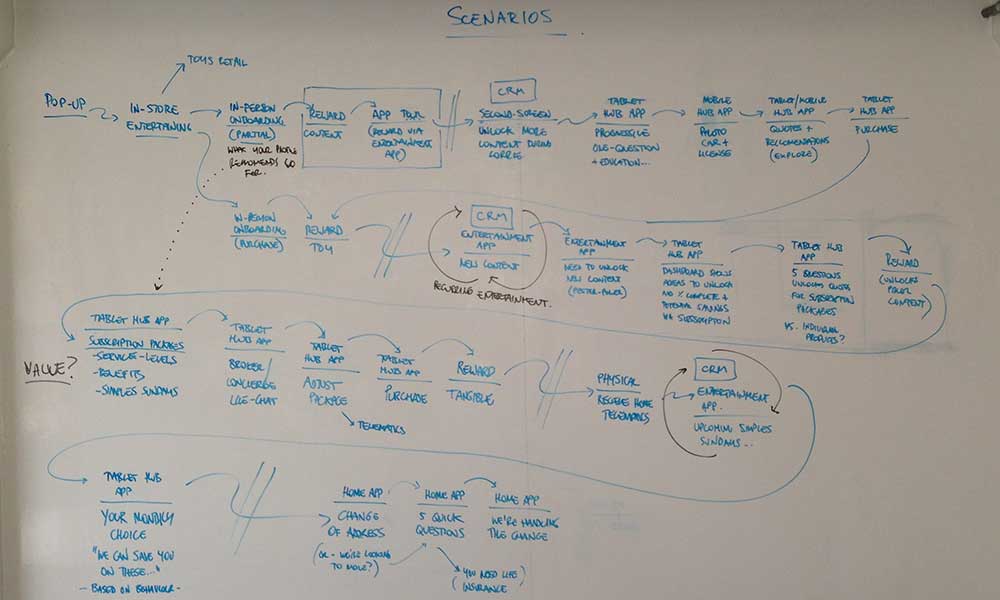 SCENARIOS
TOYS RETAIL
POP-UP
IN-STORE
ENTERTAINING
IN-PERSON
ONBOARDING
(PARTIAL)
WHAT YOUR PROFILE
RECOMMENDS SO
FAR.
REWARD
CONTENT
APP TOUR
(REWARD VIA
ENTERTAINMENT
APP)
CRM
SECOND-SCREEN
UNLOCK MORE
CONTENT DURING
CORRIE
TABLET
HUB APP
PROGRESSIVE
ONE-QUESTION
+ EDUCATION...
MOBILE
HUB APP
PHOTO
CAR +
LICENSE
TABLET/MOBILE
HUB APP
QUOTES +
RECCOMENDATIONS
(EXPLORE)
TABLET
HUB APP
PURCHASE
IN-PERSON
ONBOARDING
(PURCHASE)
REWARD
TOY
CRM
ENTERTAINMENT
APP
NEW CONTENT
RECURRING ENTERTAINMENT.
ENTERTAINMENT
APP
NEED TO UNLOCK
NEW CONTENT
(PESTER-POWER)
TABLET
HUB APP
DASHBOARD SHOWS
AREAS TO UNLOCK
AND % COMPLETE +
POTENTIAL SAVINGS
VIA SUBSCRIPTION
TABLET HUB
APP
5 QUESTIONS
UNLOCKS QUOTES
FOR SUBSCRIPTION
PACKAGES
VS. INDIVIDUAL
PRODUCTS?
REWARD
(UNLOCKS
CONTENT)
VALUE?
TABLET HUB APP
SUBSCRIPTION PACKAGES
- SERVICE-LEVELS
- BENEFITS
- SIMPLES SUNDAYS
TABLET
HUB APP
BROKER/
CONCIERGE
LIVE-CHAT
TABLET
HUB APP
ADJUST
PACKAGE
TELEMATICS
TABLET
HUB APP
PURCHASE
REWARD
TANGIBLE
PHYSICAL
RECEIVE HOME
TELEMATICS
CRM
ENTERTAINMENT
APP.
UPCOMING SIMPLES
SUNDAYS...
TABLET HUB
APP
YOUR MONTHLY
CHOICE
"WE CAN SAVE YOU
ON THESE..."
- BASED ON BEHAVIOUR -
HOME APP
CHANGE
OF ADDRESS
(OR - WE'RE LOOKING
TO MOVE?)
HOME APP
5 QUICK
QUESTIONS
YOU NEED LIFE
INSURANCE
HOME APP
WE'RE HANDLING
THE CHANGE